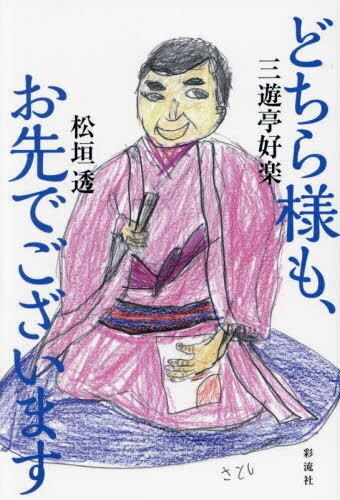 どちら様も、
三遊亭好楽
お先でございます
松垣透
さとし
彩流社